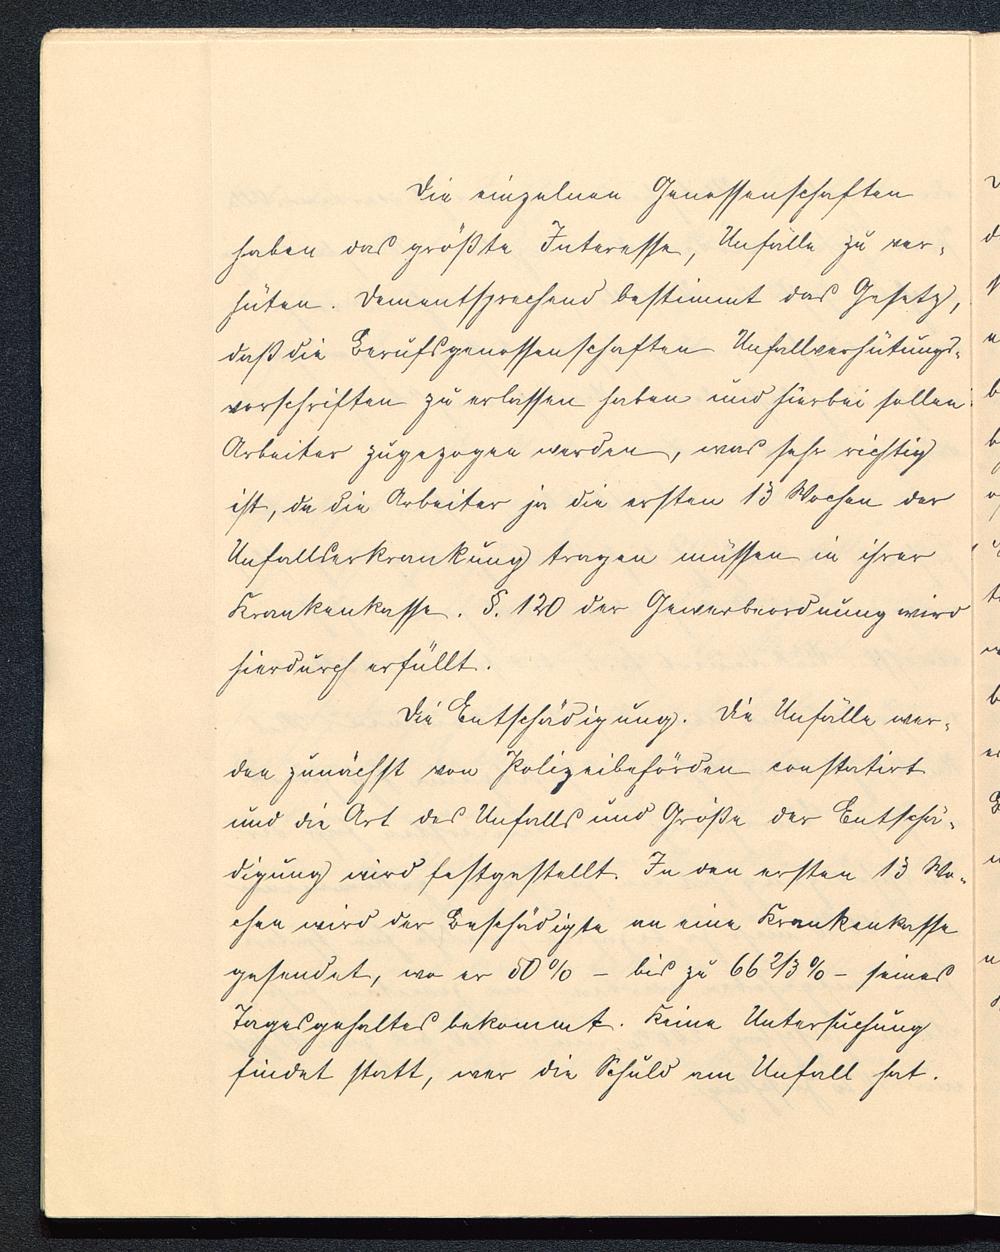 Die einzelnen Genossenschaften
haben das größte Interesse, Unfälle zu ver-
hüten. Dementsprechend bestimmt das Gesetz,
daß die Berufsgenossenschaften Unfallverhütungs-
vorschriften zu erlassen haben und hierbei sollen
Arbeiter zugezogen werden, was sehr richtig
ist, da die Arbeiter ja die ersten 13 Wochen der
Unfallserkrankung tragen müssen in ihrer
Krankenkasse. §. 120 der Gewerbeordnung wird
hierdurch erfüllt.
Die Entschädigung. Die Unfälle wer-
den zunächst von Polizeibehörden constatirt
und die Art des Unfalls und Größe der Entschä-
digung wird festgestellt. In den ersten 13 Wo-
chen wird der Beschädigte an eine Krankenkasse
gesendet, wo er 50 % – bis zu 66 2/3 % – seines
Tagesgehaltes bekommt. Keine Untersuchung
findet statt, wer die Schuld am Unfall hat.